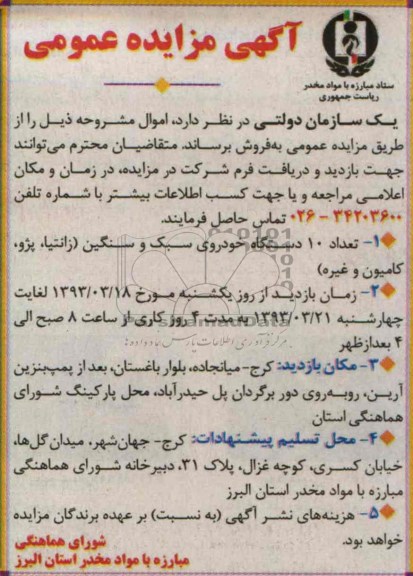 آگهی مزایده عمومی
ستاد مبارزه با مواد مخدر
ریاست جمهوری
یک سازمان دولتی در نظر دارد، اموال مشروحه ذیل را از
طریق مزایده عمومی به‌فروش برساند. متقاضیان محترم می‌توانند
جهت بازدید و دریافت فرم شرکت در مزایده، در زمان و مکان
اعلامی مراجعه و یا جهت کسب اطلاعات بیشتر با شماره تلفن
۳۴۲۰۳۶۰۰ - ۰۲۶ تماس حاصل فرمایند.
۱- تعداد ۱۰ دستگاه خودروی سبک و سنگین (زانتیا، پژو،
کامیون و غیره)
۲- زمان بازدید از روز یکشنبه مورخ ۱۳۹۳/۰۳/۱۸ لغایت
چهارشنبه ۱۳۹۳/۰۳/۲۱ به مدت ۴ روز کاری از ساعت ۸ صبح الی
۴ بعدازظهر
۳- مکان بازدید: کرج- میانجاده، بلوار باغستان، بعد از پمپ‌بنزین
آرین، روبه‌روی دور برگردان پل حیدرآباد، محل پارکینگ شورای
هماهنگی استان
۴- محل تسلیم پیشنهادات: کرج- جهان‌شهر، میدان گل‌ها،
خیابان کسری، کوچه غزال، پلاک ۳۱، دبیرخانه شورای هماهنگی
مبارزه با مواد مخدر استان البرز
۵- هزینه‌های نشر آگهی (به نسبت) بر عهده برندگان مزایده
خواهد بود.
شورای هماهنگی
مبارزه با مواد مخدر استان البرز